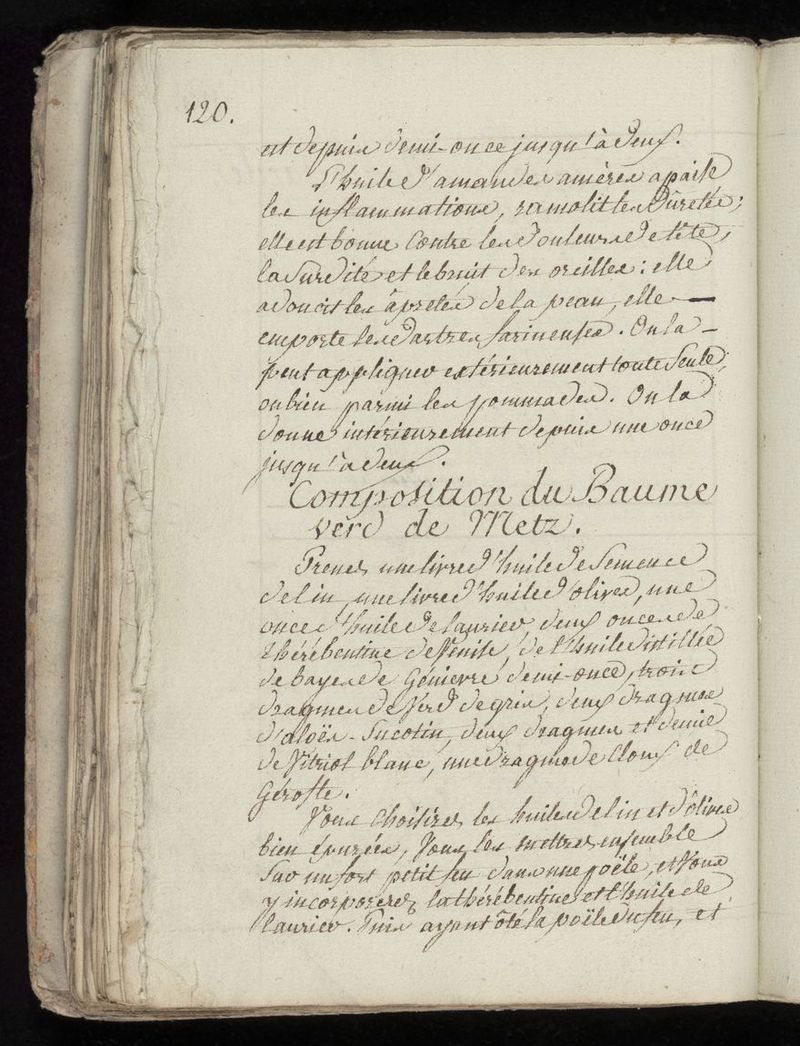 120.
est depuis demi-once jusqu'à deux.
L'huile d'amandes amères apaise
les inflammations, ramolit les duretés;
elle est bonne contre les douleurs de tête,
la surdité et le bruit des oreilles: elle
adoucit les âpretés de la peau, elle —
emporte les dartres farineuses. On la —
peut appliquer extérieurement toute seule,
ou bien parmi les pommades. On la
donne intérieurement depuis une once
jusqu'à deux.
Composition du Baume
verd de Metz.
Prenez une livre d'huile de semence
de lin, une livre d'huile d'olives, une
once d'huile de laurier deux onces de
thérébentine de Venise, de l'huile distillée
de bayes de Génievre demi-once, trois
dragmes de Verd de gris, deux dragmes
d'aloës-sucotin, deux dragmes et demie
de Vitriol blanc, une dragme de Cloux de
Gérofle.
Vous choisirez les huiles de lin et d'olives
bien épurées, Vous les mettrez ensemble
sur un fort petit feu dans une poële, et Vous
y incorporerez la thérébentine et l'huile de
laurier. Puis ayant ôté la poële du feu, et